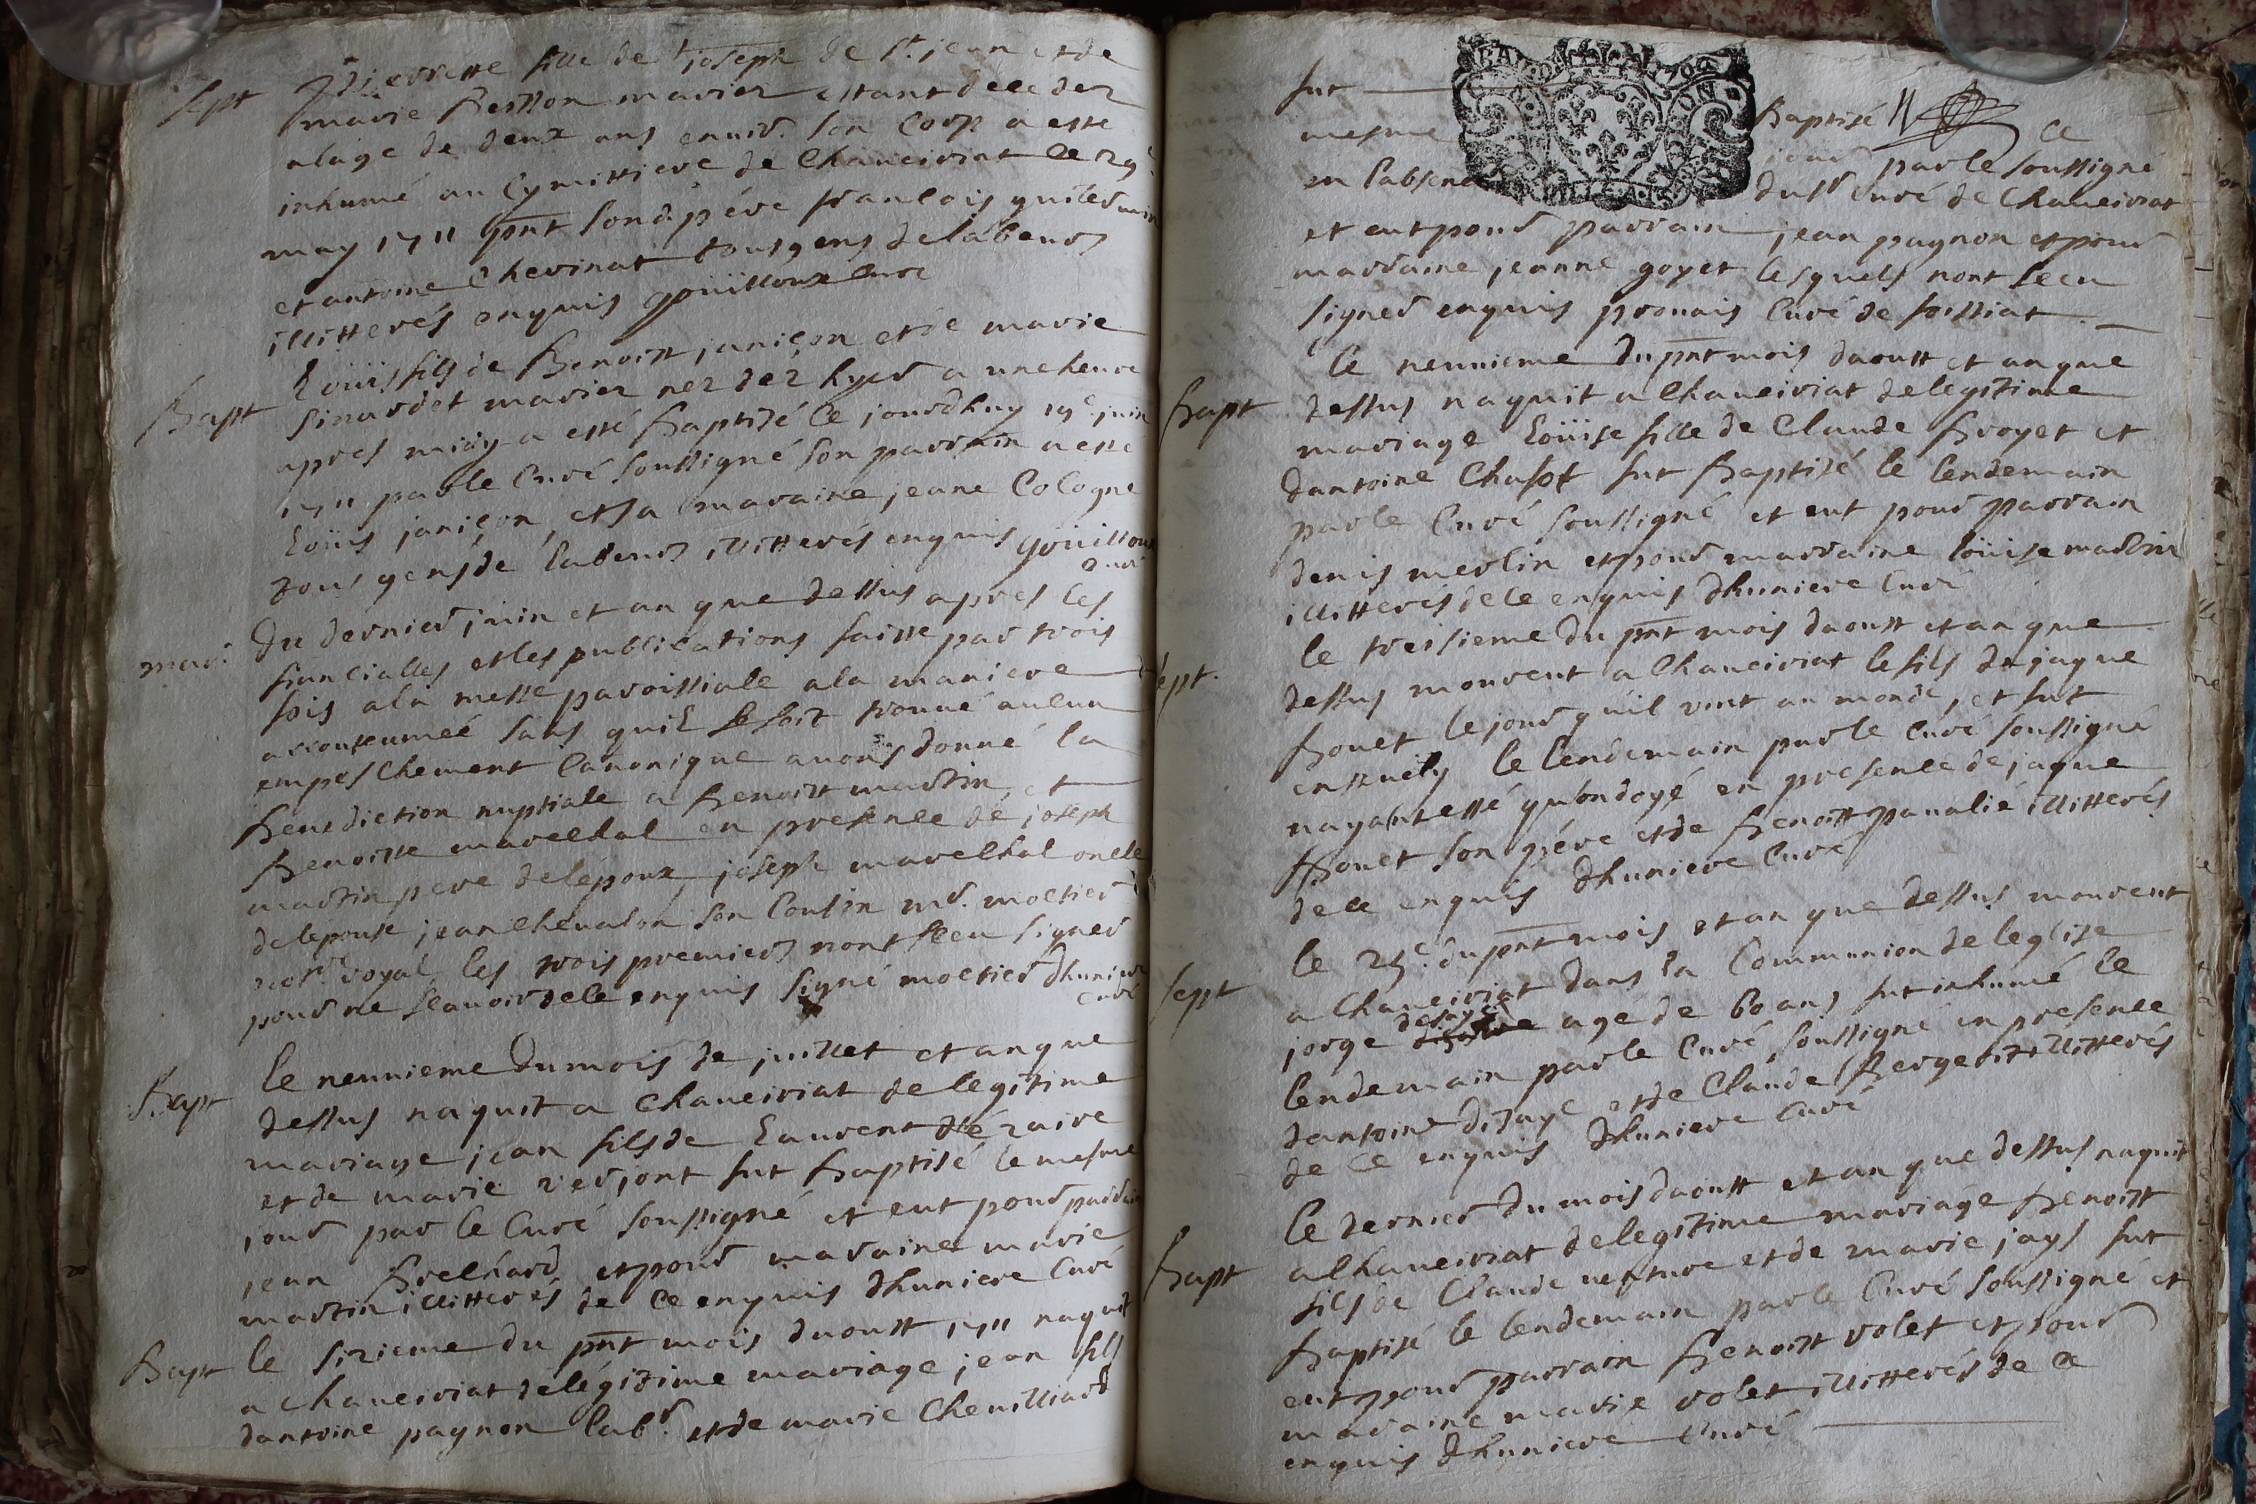 Sept
pierrette fille de joseph de St. jean et de
marie Besson mariez estant decedez
alage de deux ans envir. son corp a esté
inhumé au Cymittiere de Chaveiriat le 29e
may 1711 pnt sondt pére francois guillermin
et antoine Chevinat tous gens de labeurs
illitterés enquis gouilloux Curé
Bapt
Loüis fils de Benoist janiçon et de marie
Sinardet mariez nez de hyer a une heure
apres midy a esté Baptisé ce jourdhuy 19e juin
1711 par le Curé soussigné son parrain a esté
Loüis janiçon, et sa maraine jeane Cologne
tous gens de labeurs illitterés enquis goüilloux
Curé
mari.
Du dernier juin et an que dessus apres les
fiancialles et les publications faitte par trois
fois a la messe paroissiale a la maniere
accoutumeé sans quil se soit trouué aucun
empeschement Canonique auons donné la
Benediction nuptiale a Benoist martin, et
Benoiste marechal en presence de joseph
martin pere de lépoux, joseph marechal oncle
de lépouse jean chevalon son Cousin mr. moctier
notr. royal, les trois premiers nont sceu signer
pour ne scauoir de ce enquis signé moctier dhuniere
curé
Bapt
le neuuieme du mois de juillet et an que
dessus naquit a Chaveiriat de legitime
mariage jean fils de Laurent dézaire
et de marie verjont fut Baptisé le mesme
jour par le Curé soussigné et eut pour parrain
jean Brelhard et pour maraine marie
martin illitterés de ce enquis dhuniere Curé
Bapt
le sizieme du pnt mois daoust 1711 naquit
a Chaveiriat de légitime mariage jean fils
dantoine pagnon labr. et de marie Cheuilliard
fut Baptisé ce
mesme jour par le soussigné
en labsence du sr Curé de Chaveiriat
et eut pour parrain jean pagnon et pour
marraine jeanne goyet lesquels nont sceu
signer enquis Curé de foissiat
Bapt
le neuuieme du pnt mois daoust et an que
dessus naquit a Chaveiriat de legitime
mariage Loüise fille de Claude Broyer et
dantoine Chasot fut Baptisé le lendemain
par le Curé soussigné et eut pour parrain
denis merlin et pour marraine loüise martin
illitterés de ce enquis dhuniere Curé
Sépt.
le treisieme du pnt mois daoust et an que
dessus mourut a Chaveiriat le fils de jaque
Bouet le jour qúil vint au monde, et fut
ensevely le lendemain par le curé soussigné
nayant esté qúondoyé en presence de jaque
Bouet son pére et de Benoist panalié illitterés
de ce enquis dhuniere Curé
Sept
le 25e du pnt mois et an que dessus mourut
a Chaveiriat dans la Communion de leglise
jorge agé de 60 ans fut inhumé le
lendemain par le Curé soussigné en presence
dantoine dizaye et de Claude Berger illitterés
de ce enquis dhuniere Curé
Bapt
le dernier du mois daoust et an que dessus naquit
a Chaveiriat de legitime mariage Benoist
fils de Claude neyture et de marie jays fut
Baptisé le lendemain par le Curé soussigné et
eut pour parrain Benoist volet et pour
maraine marie volet illitterés de ce
enquis dhuniere Curé